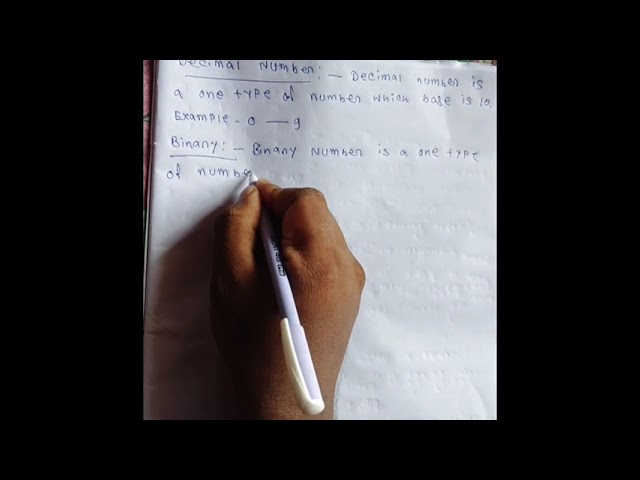 Decimal Number:- Decimal number is
a one type of number which base is 10.
Example - 0 — 9
Binary:- Binary Number is a one type
of numbe